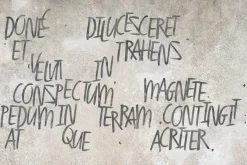 DONÉ DILUCESCERET
ET TRAHENS
VELUT IN
CONSPECTUM MAGNETE.
PEDUM IN TERRAM CONTINGIT
AT QUE ACRITER.